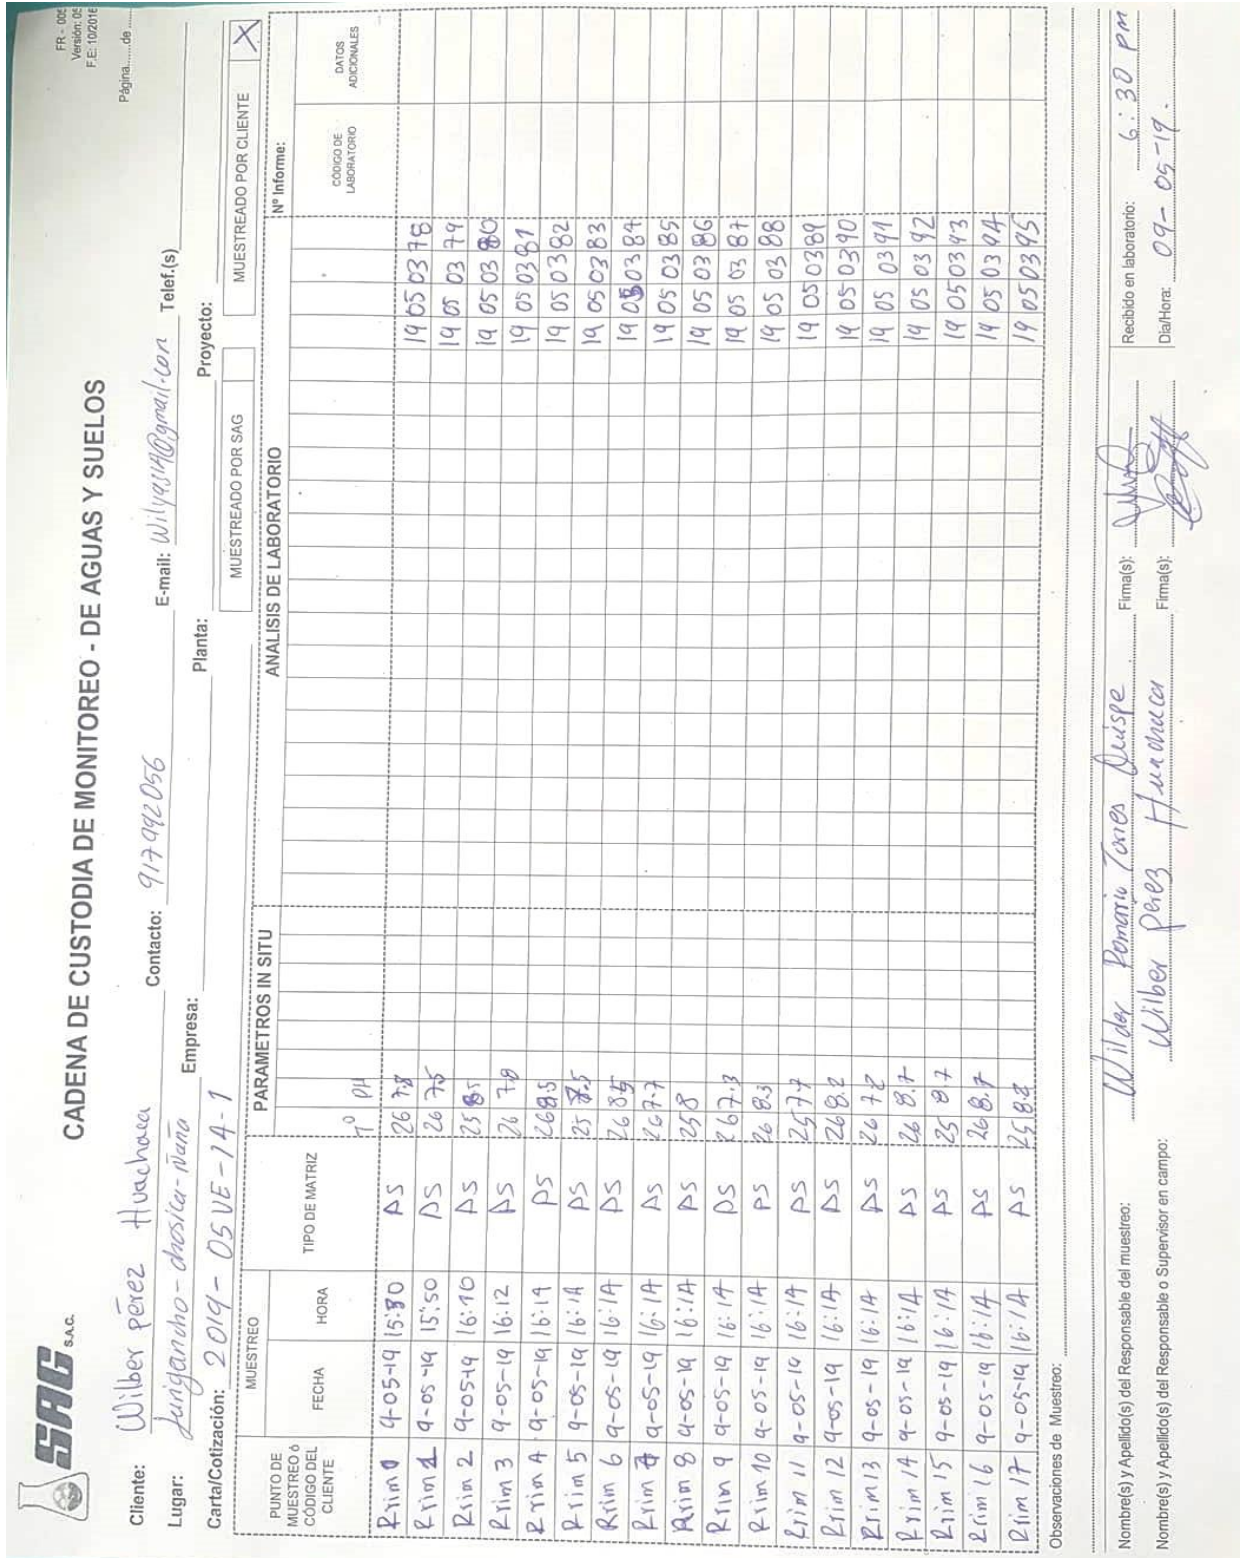 SAG S.A.C.
FR - 005
Versión: 05
F.E: 10/2016
Página.......de .......
CADENA DE CUSTODIA DE MONITOREO - DE AGUAS Y SUELOS
Cliente: Wilber Pérez Huachaca Contacto: 917992056 E-mail: Telef.(s)
Lugar: Lurigancho - chosica - Ñaña Empresa: Planta: Proyecto:
Carta/Cotización: 2019 - 05 VE - 14 - 1
MUESTREADO POR SAG MUESTREADO POR CLIENTE X
MUESTREO PARAMETROS IN SITU ANALISIS DE LABORATORIO Nº Informe:
PUNTO DE MUESTREO ó CÓDIGO DEL CLIENTE FECHA HORA TIPO DE MATRIZ Tº PH CÓDIGO DE LABORATORIO DATOS ADICIONALES
Rrim 0 9-05-19 AS 26 7.8 19 05 0378
Rrim 1 9-05-19 15:50 AS 26 7.5 19 05 0379
Rrim 2 9-05-19 16:10 AS 25 19 05 0380
Rrim 3 9-05-19 16:12 AS 26 19 05 0381
Rrim 4 9-05-19 16:14 AS 26 8.5 19 05 0382
Rrim 5 9-05-19 16:14 AS 25 19 05 0383
Rrim 6 9-05-19 16:14 AS 26 8.5 19 05 0384
Rrim 7 9-05-19 16:14 AS 26 7.7 19 05 0385
Rrim 8 9-05-19 16:14 AS 25 8 19 05 0386
Rrim 9 9-05-19 16:14 AS 26 7.3 19 05 0387
Rrim 10 9-05-19 16:14 AS 26 8.3 19 05 0388
Rrim 11 9-05-19 16:14 AS 25 7.7 19 05 0389
Rrim 12 9-05-19 16:14 AS 26 8.2 19 05 0390
Rrim 13 9-05-19 16:14 AS 26 7.2 19 05 0391
Rrim 14 9-05-19 16:14 AS 26 8.7 19 05 0392
Rrim 15 9-05-19 16:14 AS 25 8.7 19 05 0393
Rrim 16 9-05-19 16:14 AS 26 8.7 19 05 0394
Rrim 17 9-05-19 16:14 AS 25 8.2 19 05 0395
Observaciones de Muestreo:
Nombre(s) y Apellido(s) del Responsable del muestreo: Wilder Romario Torres Quispe Firma(s): Recibido en laboratorio: 6:30 PM
Nombre(s) y Apellido(s) del Responsable o Supervisor en campo: Wilber Perez Huachaca Firma(s): Dia/Hora: 09-05-19.